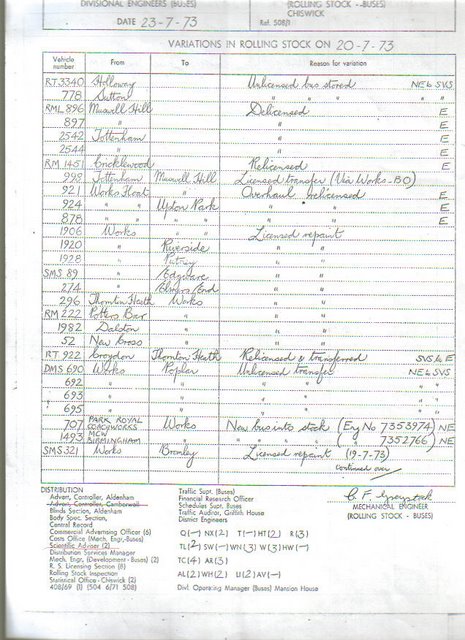 DIVISIONAL ENGINEERS (BUSES)
(ROLLING STOCK—BUSES)
CHISWICK
DATE 23-7-73
Ref. 508/1
VARIATIONS IN ROLLING STOCK ON 20-7-73
Vehicle number From To Reason for variation
RT.3340 Holloway Unlicensed bus stored NE to SVS
778 Sutton " " " " "
RML.896 Muswell Hill Delicensed E
897 " " E
2542 Tottenham " E
2544 " " E
RM 1451 Cricklewood Relicensed E
998 Tottenham Muswell Hill Licensed transfer (Via Works-BO)
921 Works Float " " Overhaul relicensed E
924 " " Upton Park " " E
878 " " " " " " E
1906 Works " " Licensed repaint
1920 " Riverside " "
1928 " Putney " "
SMS.89 " Edgware " "
274 " Elmers End " "
296 Thornton Heath Works " "
RM 222 Potters Bar " " "
1982 Dalston " " "
52 New Cross " " "
RT.922 Croydon Thornton Heath Relicensed & transferred SVS to E
DMS 690 Works Poplar Unlicensed transfer NE to SVS
692 " " " " " "
693 " " " " " "
695 " " " " " "
707 PARK ROYAL COACHWORKS Works New bus into stock (Eng No 7353974) NE
1493 MCW BIRMINGHAM " " " " " ( " " 7352766) NE
SMS 321 Works Bromley Licensed repaint (19-7-73)
continued over
DISTRIBUTION
Advert, Controller, Aldenham
Advert, Controller, Camberwell
Blinds Section, Aldenham
Body Spec. Section,
Central Record
Commercial Advertising Officer (6)
Costs Office (Mech. Engr.-Buses)
Scientific Adviser (2)
Distribution Services Manager
Mech. Engr. (Development-Buses) (2)
R. S. Licensing Section (8)
Rolling Stock Inspection
Statistical Office - Chiswick (2)
408/69 (1) (504 6/71 508)
Traffic Supt. (Buses)
Financial Research Officer
Schedules Supt. Buses
Traffic Auditor, Griffith House
District Engineers
Q(—) NX(2) T(—) HT(2) R(3)
TL(2) SW(—) WN(3) W(3) HW(—)
TC(4) AR(3)
AL(2) WH(2) U(2) AV(—)
Divl. Operating Manager (Buses) Mansion House
MECHANICAL ENGINEER
(ROLLING STOCK - BUSES)